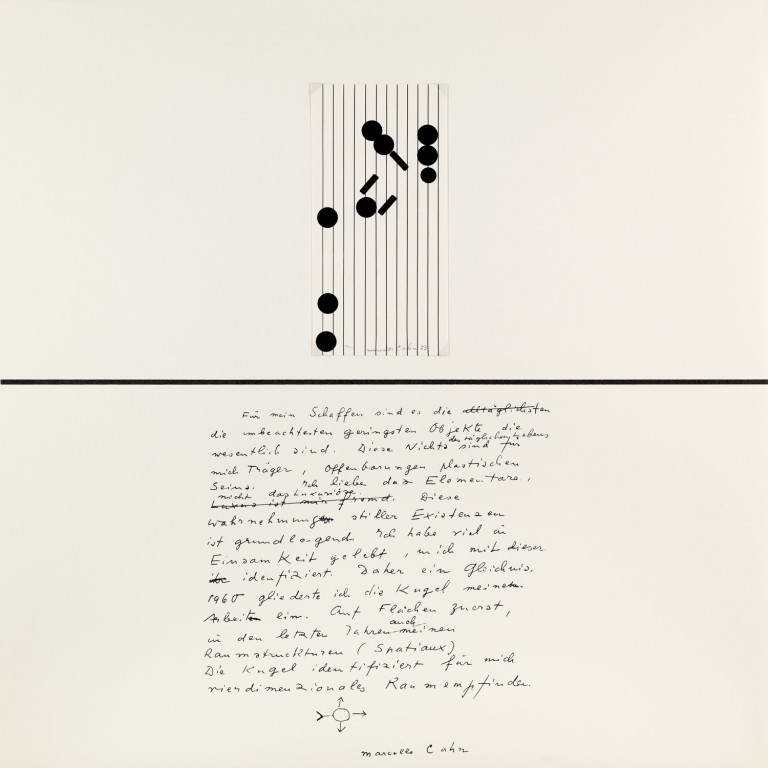 marcelle Cahn
Für mein Schaffen sind es die alltäglichsten
die unbeachtesten geringsten Objekte die
des täglichen Lebens
wesentlich sind. Diese Nichts sind für
mich Träger, Offenbarungen plastischen
Seins. Ich liebe das Elementare,
nicht das Luxuriöse.
Luxus ist mir fremd. Diese
Wahrnehmung stiller Existenzen
ist grundlegend. Ich habe viel in
Einsamkeit gelebt, mich mit dieser
identifiziert. Daher ein Gleichnis.
1960 gliederte ich die Kugel meinen
Arbeiten ein. Auf Flächen zuerst,
auch
in den letzten Jahren meinen
Raumstruckturen (Spatiaux)
Die Kugel identifiziert für mich
vierdimenzionales Raumempfinden.
marcelle Cahn